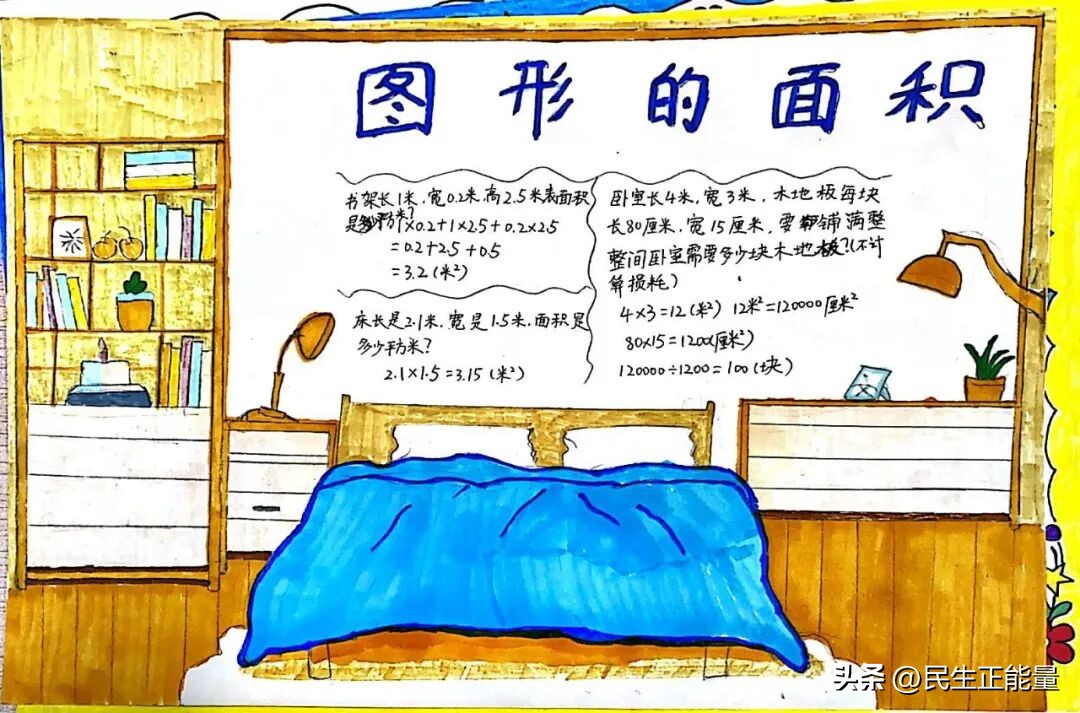 图形的面积
书架长1米,宽0.2米,高2.5米表面积
是多少平方米?
1×0.2+1×2.5+0.2×2.5
=0.2+2.5+0.5
=3.2(米²)
床长是2.1米,宽是1.5米,面积是
多少平方米?
2.1×1.5=3.15(米²)
卧室长4米,宽3米,木地板每块
长80厘米,宽15厘米,要铺满整
整间卧室需要多少块木地板?(不计
算损耗)
4×3=12(米²) 12米²=120000厘米²
80×15=1200(厘米²)
120000÷1200=100(块)
头条 @民生正能量